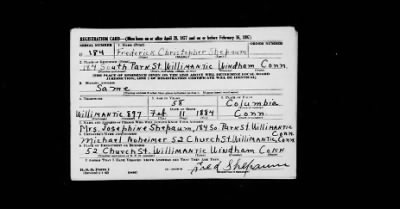 REGISTRATION CARD—(Men born on or after April 28, 1877 and on or before February 16, 1897)
SERIAL NUMBER 1. NAME (Print) ORDER NUMBER
U 184 Frederick Christopher Shepaum
2. PLACE OF RESIDENCE (Print)
184 South Park St. Willimantic Windham Conn.
[THE PLACE OF RESIDENCE GIVEN ON THE LINE ABOVE WILL DETERMINE LOCAL BOARD
JURISDICTION; LINE 2 OF REGISTRATION CERTIFICATE WILL BE IDENTICAL]
3. MAILING ADDRESS
Same
4. TELEPHONE 5. AGE IN YEARS 6. PLACE OF BIRTH
58 Columbia
Willimantic 897 Feb 11 1884 Conn
7. NAME AND ADDRESS OF PERSON WHO WILL ALWAYS KNOW YOUR ADDRESS
Mrs. Josephine Shepaum, 184 So Park St. Willimantic Conn
8. EMPLOYER'S NAME AND ADDRESS
Michael 52 Church St. Willimantic, Conn
9. PLACE OF EMPLOYMENT OR BUSINESS
52 Church St. Willimantic Windham Conn
I AFFIRM THAT I HAVE VERIFIED ABOVE ANSWERS AND THAT THEY ARE TRUE.
Fred Shepaum
D. S. S. Form 1